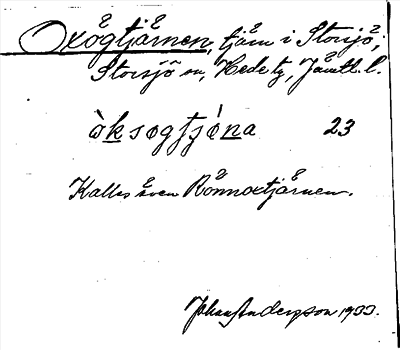 Oxögtjärnen, tjärn i Storsjö;
Storsjö sn, Hede tg, Jämtl. l.
òksøgtjǿna 23
Kallas även Rönnoxtjärnen.
Johan Anderson 1933.